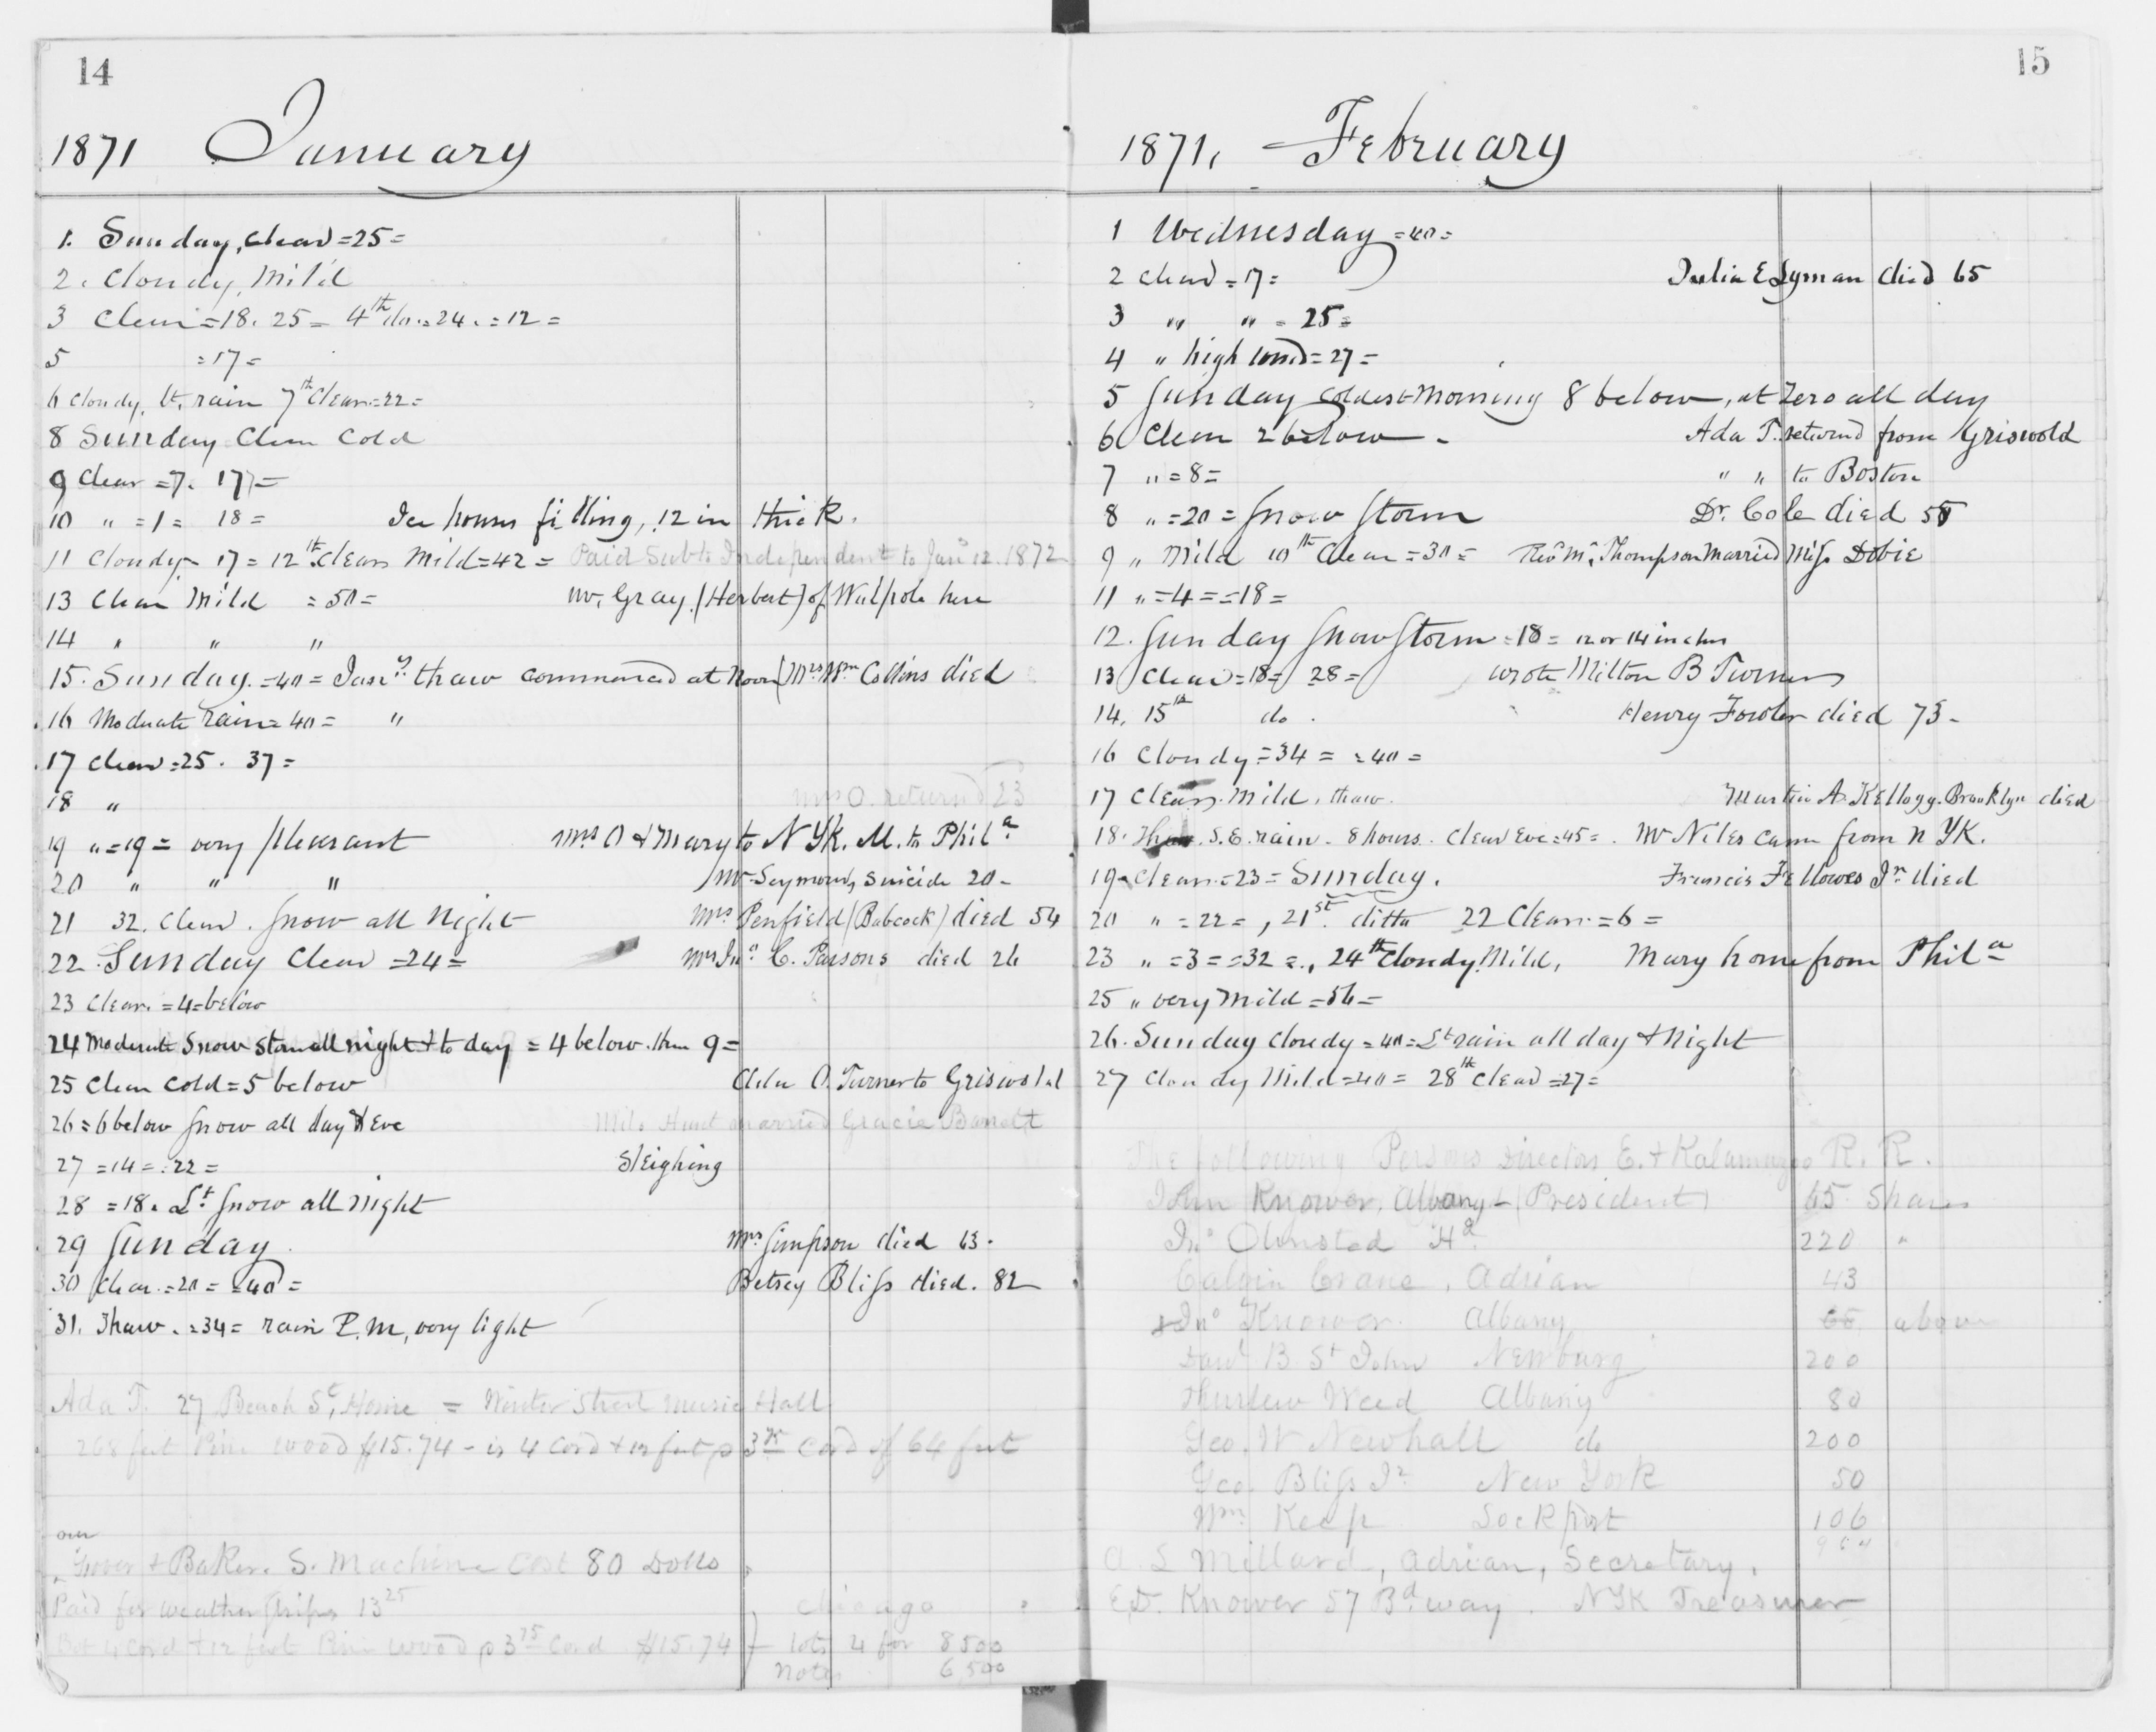 14
1871 January
1. Sunday, Clear =25=
2. Cloudy, Mild
3 Clear =18. 25= 4th do. =24. =12=
5 =17=
6 Cloudy, lt. rain 7th Clear =22=
8 Sunday Clear Cold
9 Clear =7. 17=
10 " =1= 18= Ice houses filling, 12 in thick.
11 Cloudy- 17= 12th Clear Mild =42= Paid Subs Independent to Jany 12. 1872
13 Clear Mild =50= Mr. Gray (Herbert) of Walpole here
14 " " "
15. Sunday. =40= Jany thaw commenced at Noon (Mrs Wm Collins died
16 Moderate rain =40= "
17 Clear =25. 37=
18 " Mrs O. returned 23
19 " =19= very pleasant Mrs O & Mary to N YK. M. to Phila
20 " " " Mr Seymour, suicide 20-
21 32. Clear. Snow all Night Mrs Penfield (Babcock) died 54
22. Sunday Clear =24= Mrs Jno C. Parsons died 26
23 Clear. =4= below
24 Moderate Snow storm all night & to day =4 below. then 9=
25 Clear Cold =5 below Ada O. Turner to Griswold
26 =6 below Snow all day & Eve Milo Hunt married Gracie
27 =14= =22= Sleighing
28 =18. Lt Snow all night
29 Sunday Mrs Simpson died 63.
30 Clear. =20= =40= Betsey Bliss died. 82
31. Thaw. =34= rain P.M, very light
Ada T. 27 Beach St, Home = Winter Street Music Hall
268 feet Pine wood $15.74 - is 4 Cord & 12 feet p 3 75 Cord of 64 feet
over
Grover & Baker. S. Machine Cost 80 Dolls
Paid for weather Strips 13 25
Bot 4 Cord & 12 feet Pine wood p 3 75 Cord $15.74
Chicago
lots 4 for 8500
Notes 6500
15
1871, February
1 Wednesday =40=
2 Clear =17= Julia E Lyman died 65
3 " " =25=
4 " high wind =27=
5 Sunday Coldest Morning 8 below, at Zero all day
6 Clear 2 below - Ada T. returnd from Griswold
7 " =8= " " to Boston
8 " =20= Snow Storm Dr. Cole died
9 " Mild 10th Clear =30= Revd Mr. Thompson Married Miss Dobie
11 " =4= =18=
12. Sunday Snow Storm =18= 12 or 14 inches
13 Clear =18= 28= wrote Milton B Turner
14, 15th do. Henry Fowler died 73-
16 Cloudy =34= =40=
17 Clear. Mild. thaw. Martin A. Kellogg. Brooklyn died
18. S.E. rain. 8 hours. Clear Eve =45=. Mr Niles came from N YK.
19 Clear =23= Sunday. Francis Fellowes Jr. died
20 " =22=, 21st. ditto 22 Clear. =6=
23 " =3= =32=., 24th Cloudy. Mild, Mary home from Phila
25 " very mild =56=
26. Sunday Cloudy =40= Lt rain all day & Night
27 Cloudy Mild =40= 28th Clear =27=
The following Persons Directors E. & Kalamazoo R. R.
John Knower, Albany - (President) 65 Shares
Jno Olmsted Hd 220 "
Calvin Crane, Adrian 43
Jno Knower Albany 65 above
Danl B. St John Newburg 200
Thurlow Weed Albany 80
Geo. W Newhall do 200
Geo. Bliss Jr New York 50
Wm Keep Lockport 106
A. L Millard, Adrian, Secretary.
E.D. Knower 57 Bdway. N YK Treasurer